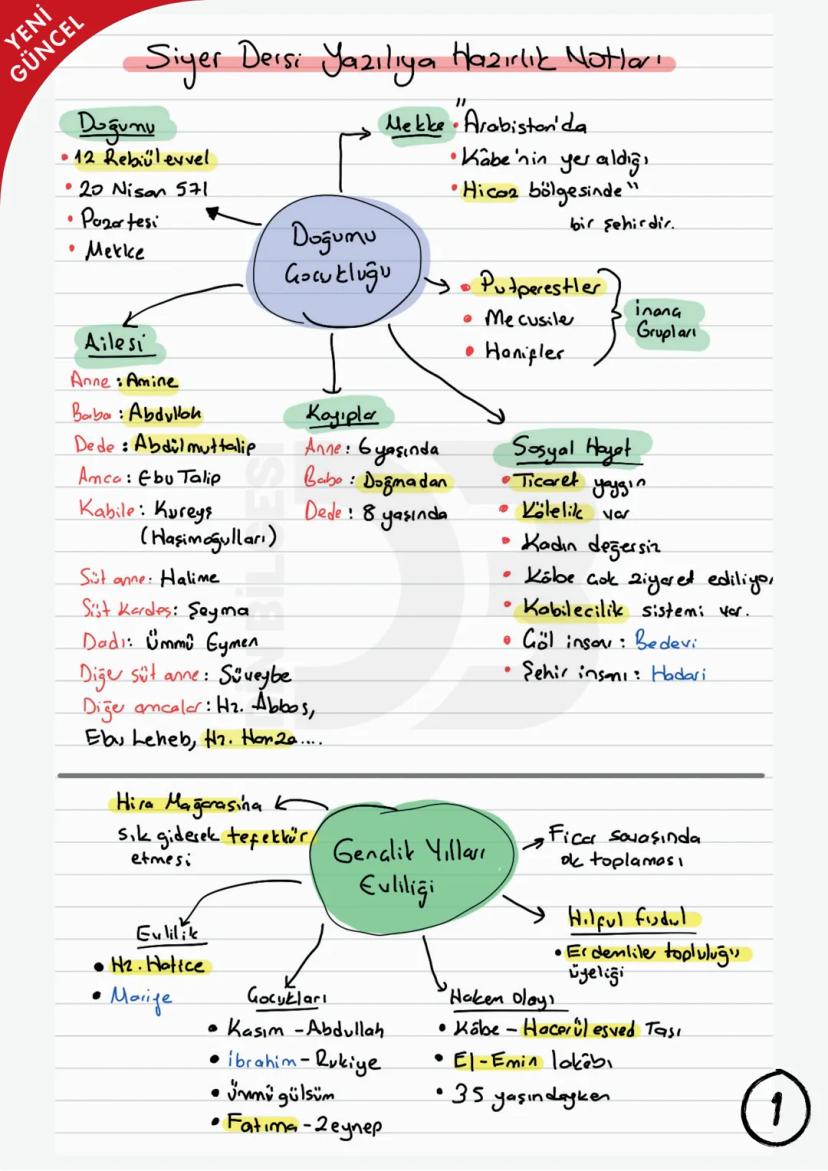 YENİ
GÜNCEL
Siyer Dersi Yazılıya Hazırlık Notları
Doğumu
• 12 Rebiülevvel
• 20 Nisan 571
• Pazartesi
• Mekke
Mekke "• Arabistan'da
• Kâbe'nin yer aldığı
• Hicaz bölgesinde"
bir şehirdir.
Doğumu
Çocukluğu
• Putperestler
• Mecusiler
• Hanifler
inanç
Grupları
Ailesi
Anne : Amine
Baba : Abdullah
Dede : Abdülmuttalip
Amca : Ebu Talip
Kabile : Kureyş
(Haşimoğulları)
Süt anne: Halime
Süt Kardeş: Şeyma
Dadı: Ümmü Eymen
Diğer süt anne: Süveybe
Diğer amcalar: Hz. Abbas,
Ebu Leheb, Hz. Hamza....
Kayıplar
Anne : 6 yaşında
Baba : Doğmadan
Dede : 8 yaşında
Sosyal Hayat
• Ticaret yaygın
• Kölelik var
• Kadın değersiz
• Kâbe çok ziyaret ediliyor
• Kabilecilik sistemi var.
• Çöl insanı : Bedevi
• Şehir insanı : Hadari
DİN BİLGESİ
DB
Hira Mağarasına
sık giderek tefekkür
etmesi
Gençlik Yılları
Evliliği
Ficar savaşında
ok toplaması
Hılful fudul
• Erdemliler topluluğu
üyeliği
Evlilik
• Hz. Hatice
• Mariye
Çocukları
• Kasım - Abdullah
• İbrahim - Rukiye
• Ümmü gülsüm
• Fatıma - Zeynep
Hakem Olayı
• Kâbe - Hacerül esved Taşı
• El-Emin lakâbı
• 35 yaşındayken
1